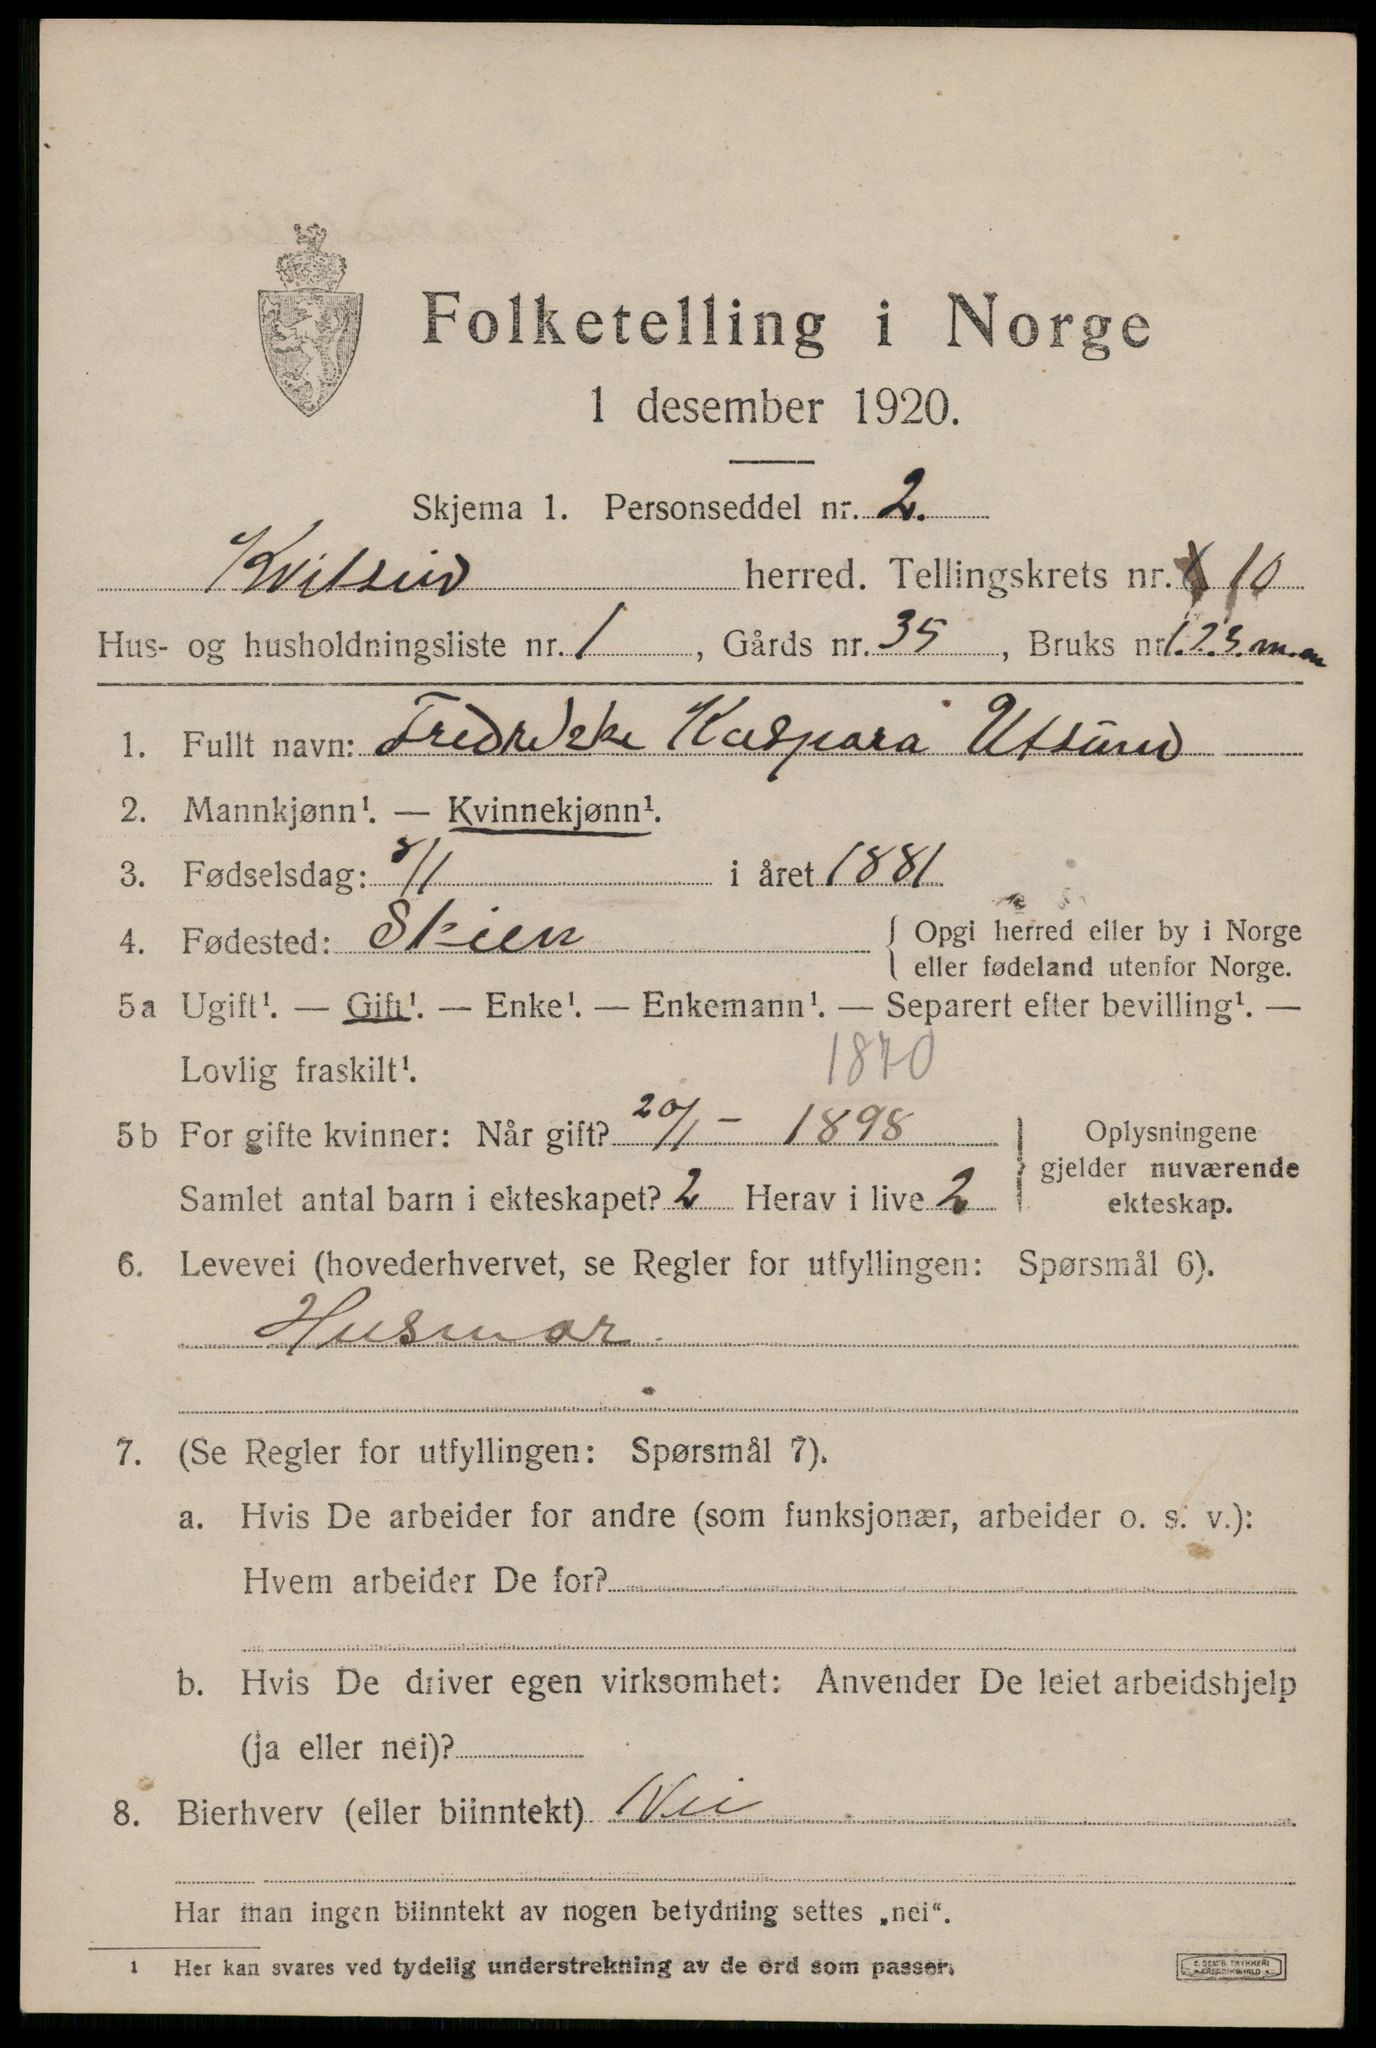 Folketelling i Norge
1 desember 1920.
Skjema 1. Personseddel nr. 2.
herred. Tellingskrets nr. 10
Hus- og husholdningsliste nr. 1, Gårds nr. 35, Bruks nr. 1.2.3. m.m
1. Fullt navn: Fredrikke Kaspara Utsund
2. Mannkjønn¹. — Kvinnekjønn¹.
3. Fødselsdag: 8/1 i året 1881
4. Fødested: Skien { Opgi herred eller by i Norge
eller fødeland utenfor Norge.
5a Ugift¹. — Gift¹. — Enke¹. — Enkemann¹. — Separert efter bevilling¹. —
Lovlig fraskilt¹. 1870
5b For gifte kvinner: Når gift? 20/1 - 1898
Samlet antal barn i ekteskapet? 2 Herav i live 2
} Oplysningene
gjelder nuværende
ekteskap.
6. Levevei (hovederhvervet, se Regler for utfyllingen: Spørsmål 6).
Husmor.
7. (Se Regler for utfyllingen: Spørsmål 7).
a. Hvis De arbeider for andre (som funksjonær, arbeider o. s. v.):
Hvem arbeider De for?
b. Hvis De driver egen virksomhet: Anvender De leiet arbeidshjelp
(ja eller nei)?
8. Bierhverv (eller biinntekt) Nei
Har man ingen biinntekt av nogen betydning settes „nei“.
¹ Her kan svares ved tydelig understrekning av de ord som passer.
E. SEM'S TRYKKERI
FREDRIKSHALD